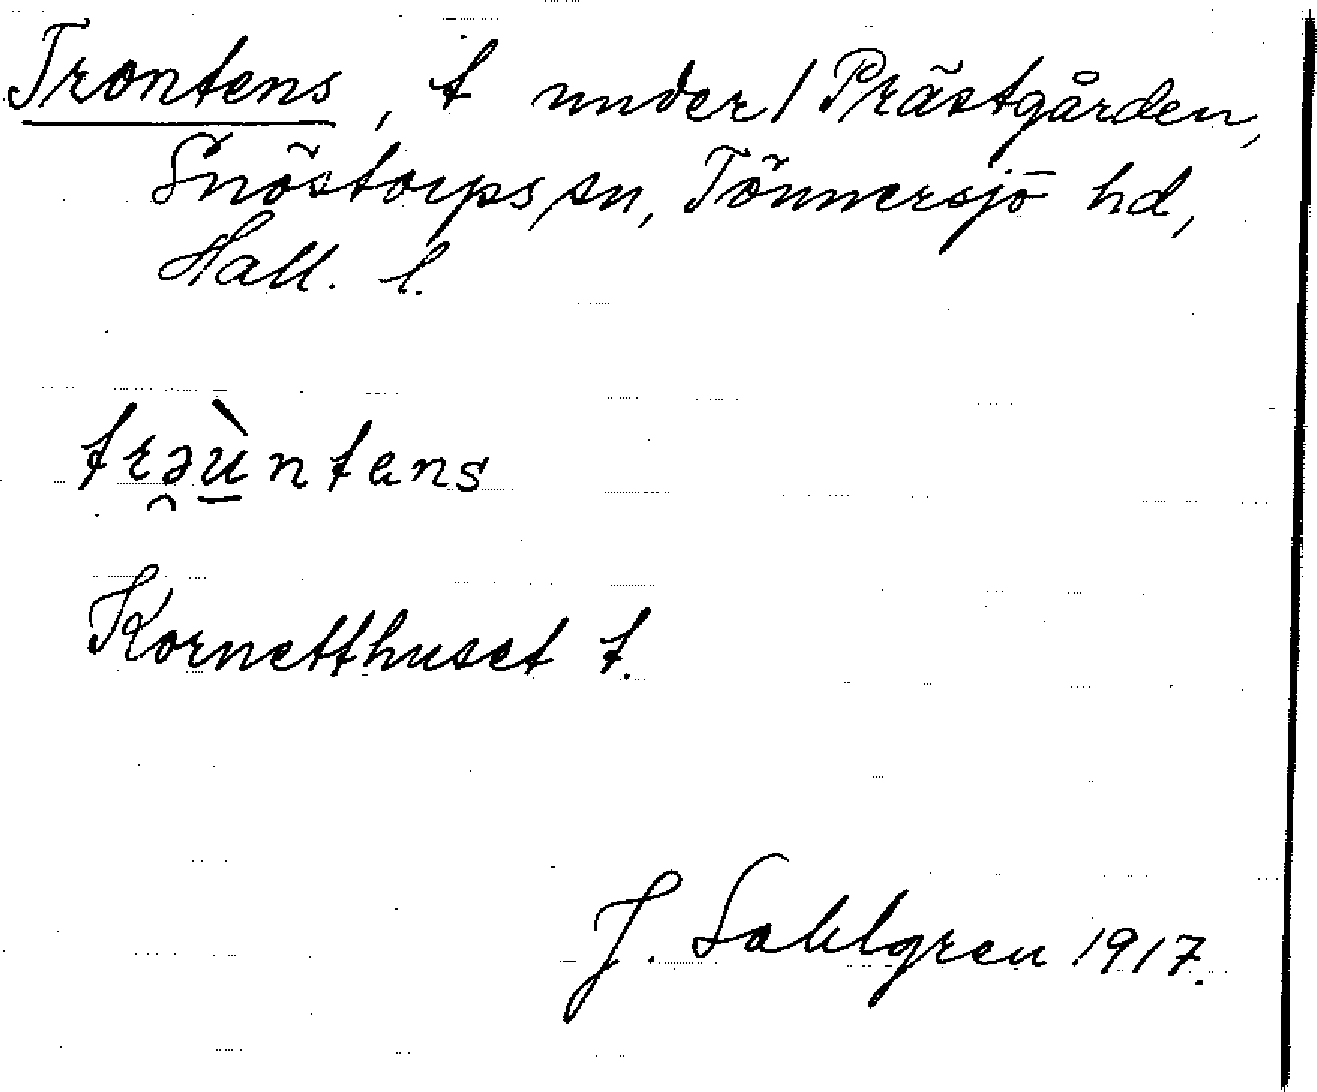 Trontens, t under / Prästgården,
Snöstorps sn, Tönnersjö hd,
Hall. l.
trə̯ù̲ntans
Kornetthuset t.
J. Sahlgren 1917.